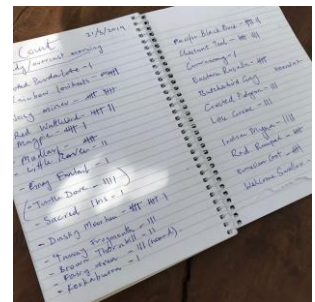 Count 21/3/2019
overcast morning
Pardalote - 1
Rainbow Lorikeets - 卌
Noisy miner - 卌
Red Wattlebird - 卌 ||
Magpie - 卌 |
Mudlark - 卌
- Little Raven - ||
- Grey Fantail - 1
(- Turtle Dove - ||||)
- Sacred Ibis - 1
- Dusky Moorhen - 卌 卌 1
- Tawny Frogmouth - |||
- Brown Thornhill - ||
- Fairy wren - ||| (heard)
- Kookaburra - 1
Pacific Black Duck - 卌 ||
Chestnut Teal - 卌
Cormorant - 1
Eastern Rosella - 卌
Butcherbird Grey
Crested Pigeon - ||
Little Corella - |||
Indian Mynah - ||||
Red Rumped - 卌
European Coot - 卌
Welcome Swallow -